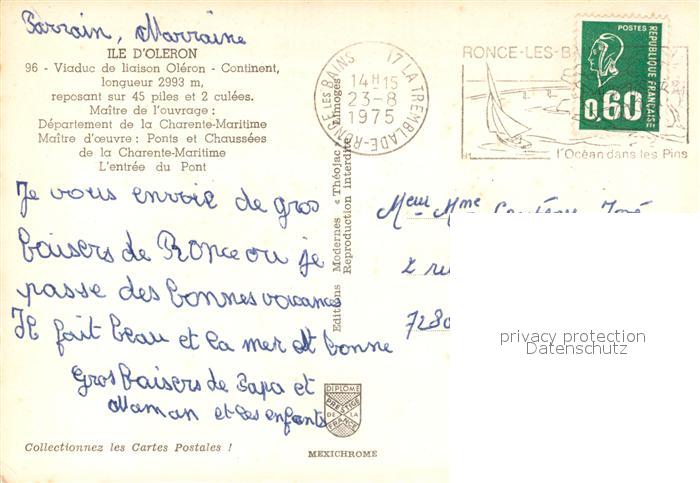 Parrain, Marraine
ILE D'OLERON
96 - Viaduc de liaison Oléron - Continent,
longueur 2993 m,
reposant sur 45 piles et 2 culées.
Maître de l'ouvrage :
Département de la Charente-Maritime
Maître d'œuvre : Ponts et Chaussées
de la Charente-Maritime
L'entrée du Pont
Je vous envoie de gros
baisers de Ronce ou je
passe des bonnes vacances
Il fait beau et la mer et bonne
Gros baisers de Papa et
Maman et les enfants
Collectionnez les Cartes Postales !
Editions Modernes « Théojac » Limoges
Reproduction interdite
DIPLOME
PRESTIGE
DE LA
FRANCE
MEXICHROME
17 LA TREMBLADE-RONCE LES BAINS
14H15
23-8
1975
RONCE-LES-BA
l'Océan dans les Pins
POSTES
REPUBLIQUE FRANÇAISE
0,60
Meur Mme José
2 rue
7280
privacy protection
Datenschutz